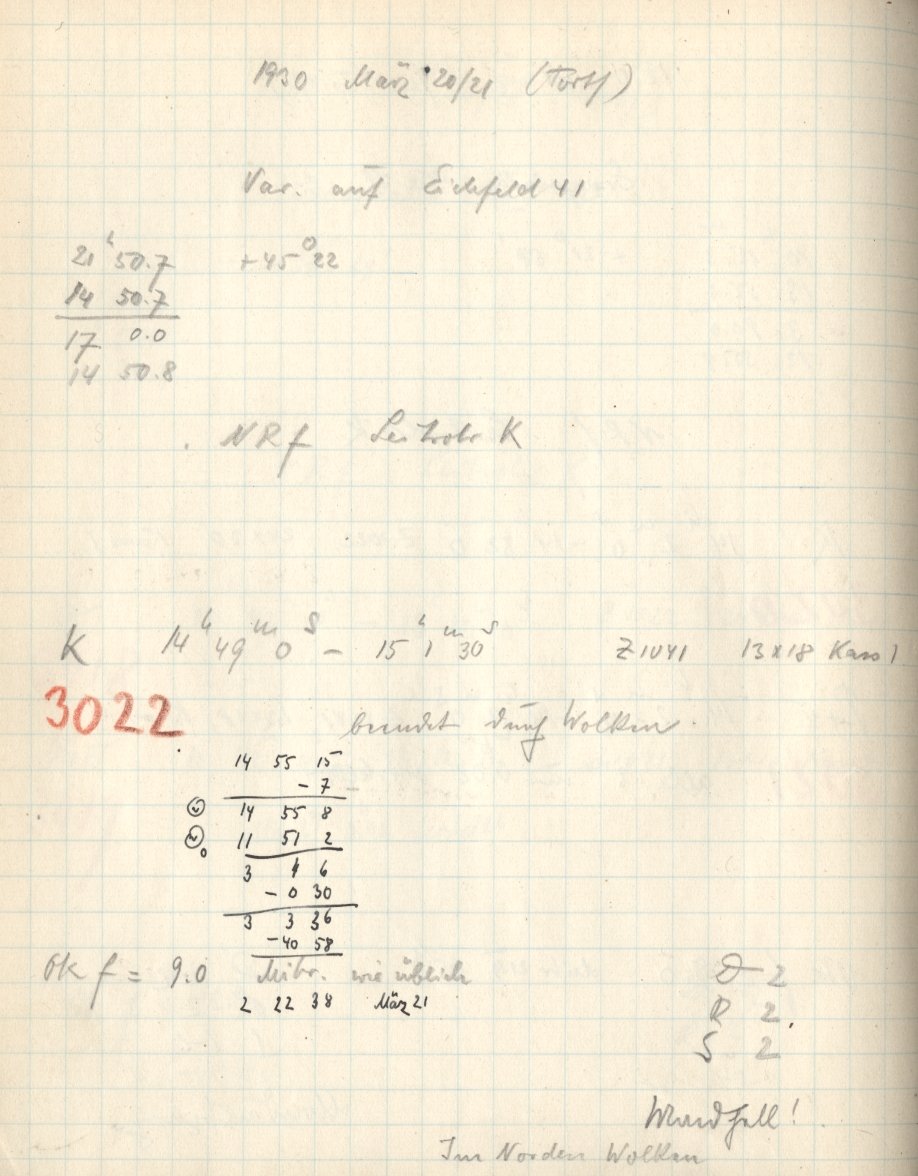 1930 März 20/21 (Forts)
Var. auf Eichfeld 41
21ʰ 50.7 +45° 22
14 50.7
17 0.0
14 50.8
NRf Leitrohr K
K 14ʰ 49ᵐ 0ˢ – 15ʰ 1ᵐ 30ˢ Z 1041 13x18 Kass 1
3022 beendet durch Wolken.
14 55 15
– 7
14 55 8
11 51 2
3 4 6
– 0 30
3 3 36
– 40 58
Ok f = 9.0 Mikr. wie üblich D 2
2 22 38 März 21
R 2
S 2
Mondhell!
Im Norden Wolken